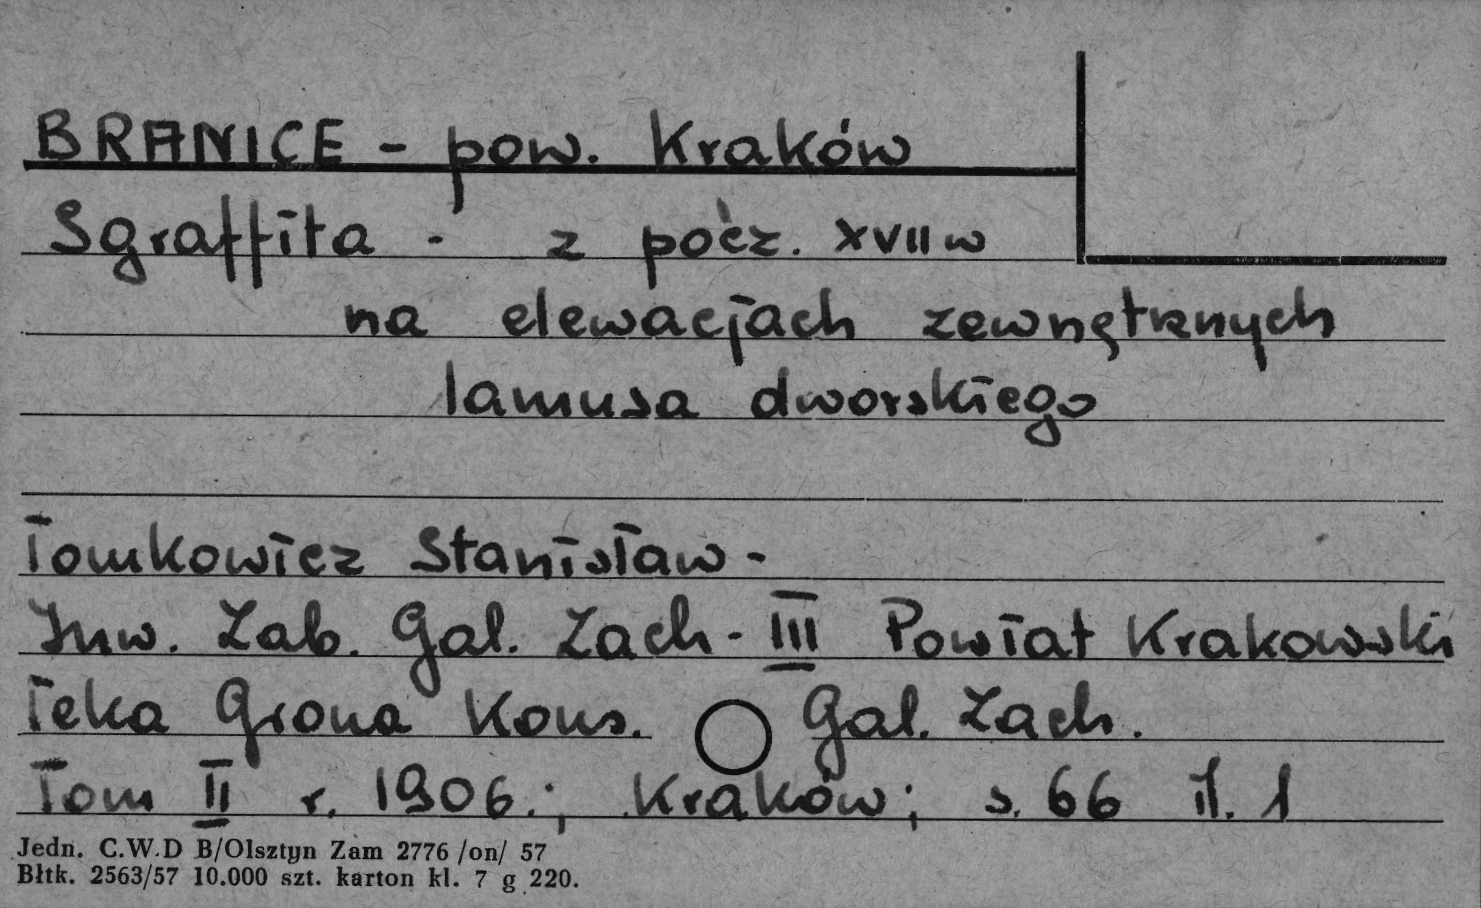 BRANICE - pow. Kraków
Sgraffita - z pocz. XVII w
na elewacjach zewnętrznych
lamusa dworskiego
Tomkowicz Stanisław -
Inw. Zab. Gal. Zach - III Powiat Krakowski
Teka Grona Kons. Gal. Zach.
Tom II r. 1906.; Kraków; s. 66 il. 1
Jedn. C.W.D B/Olsztyn Zam 2776 /on/ 57
Błtk. 2563/57 10.000 szt. karton kl. 7 g 220.